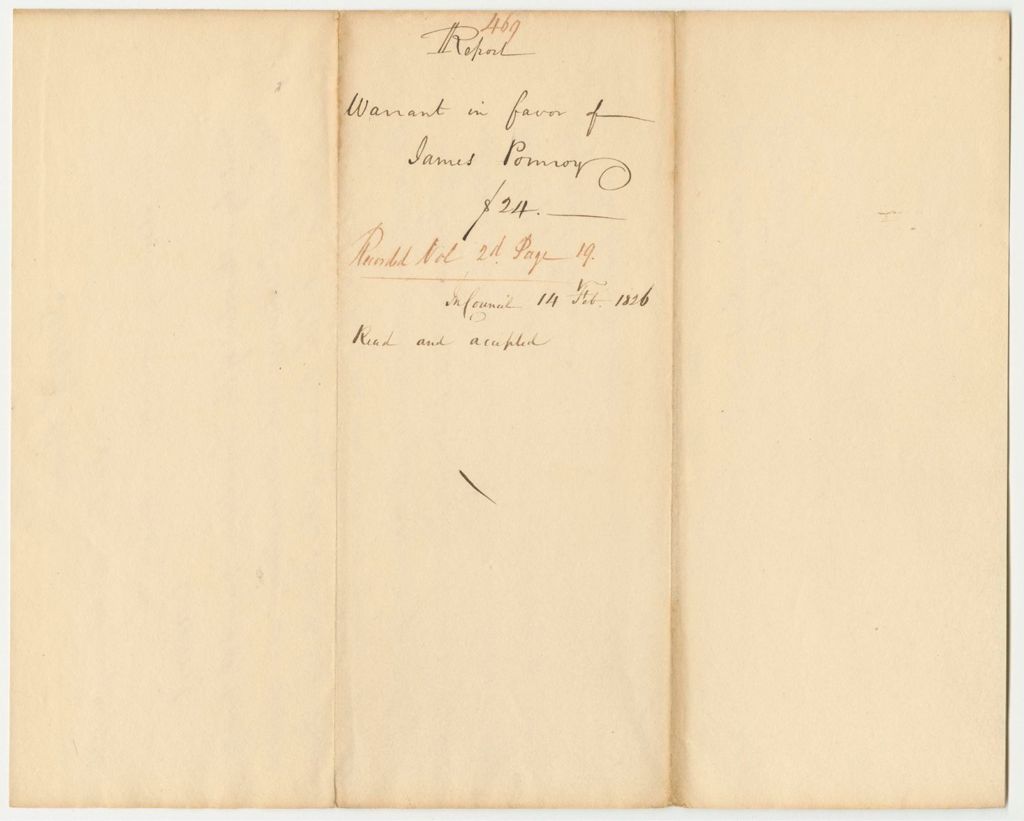 469
Report
Warrant in favor of
James Pomroy
$24.
Recorded Vol 2d. Page 19.
In Council 14 Feb. 1826
Read and accepted